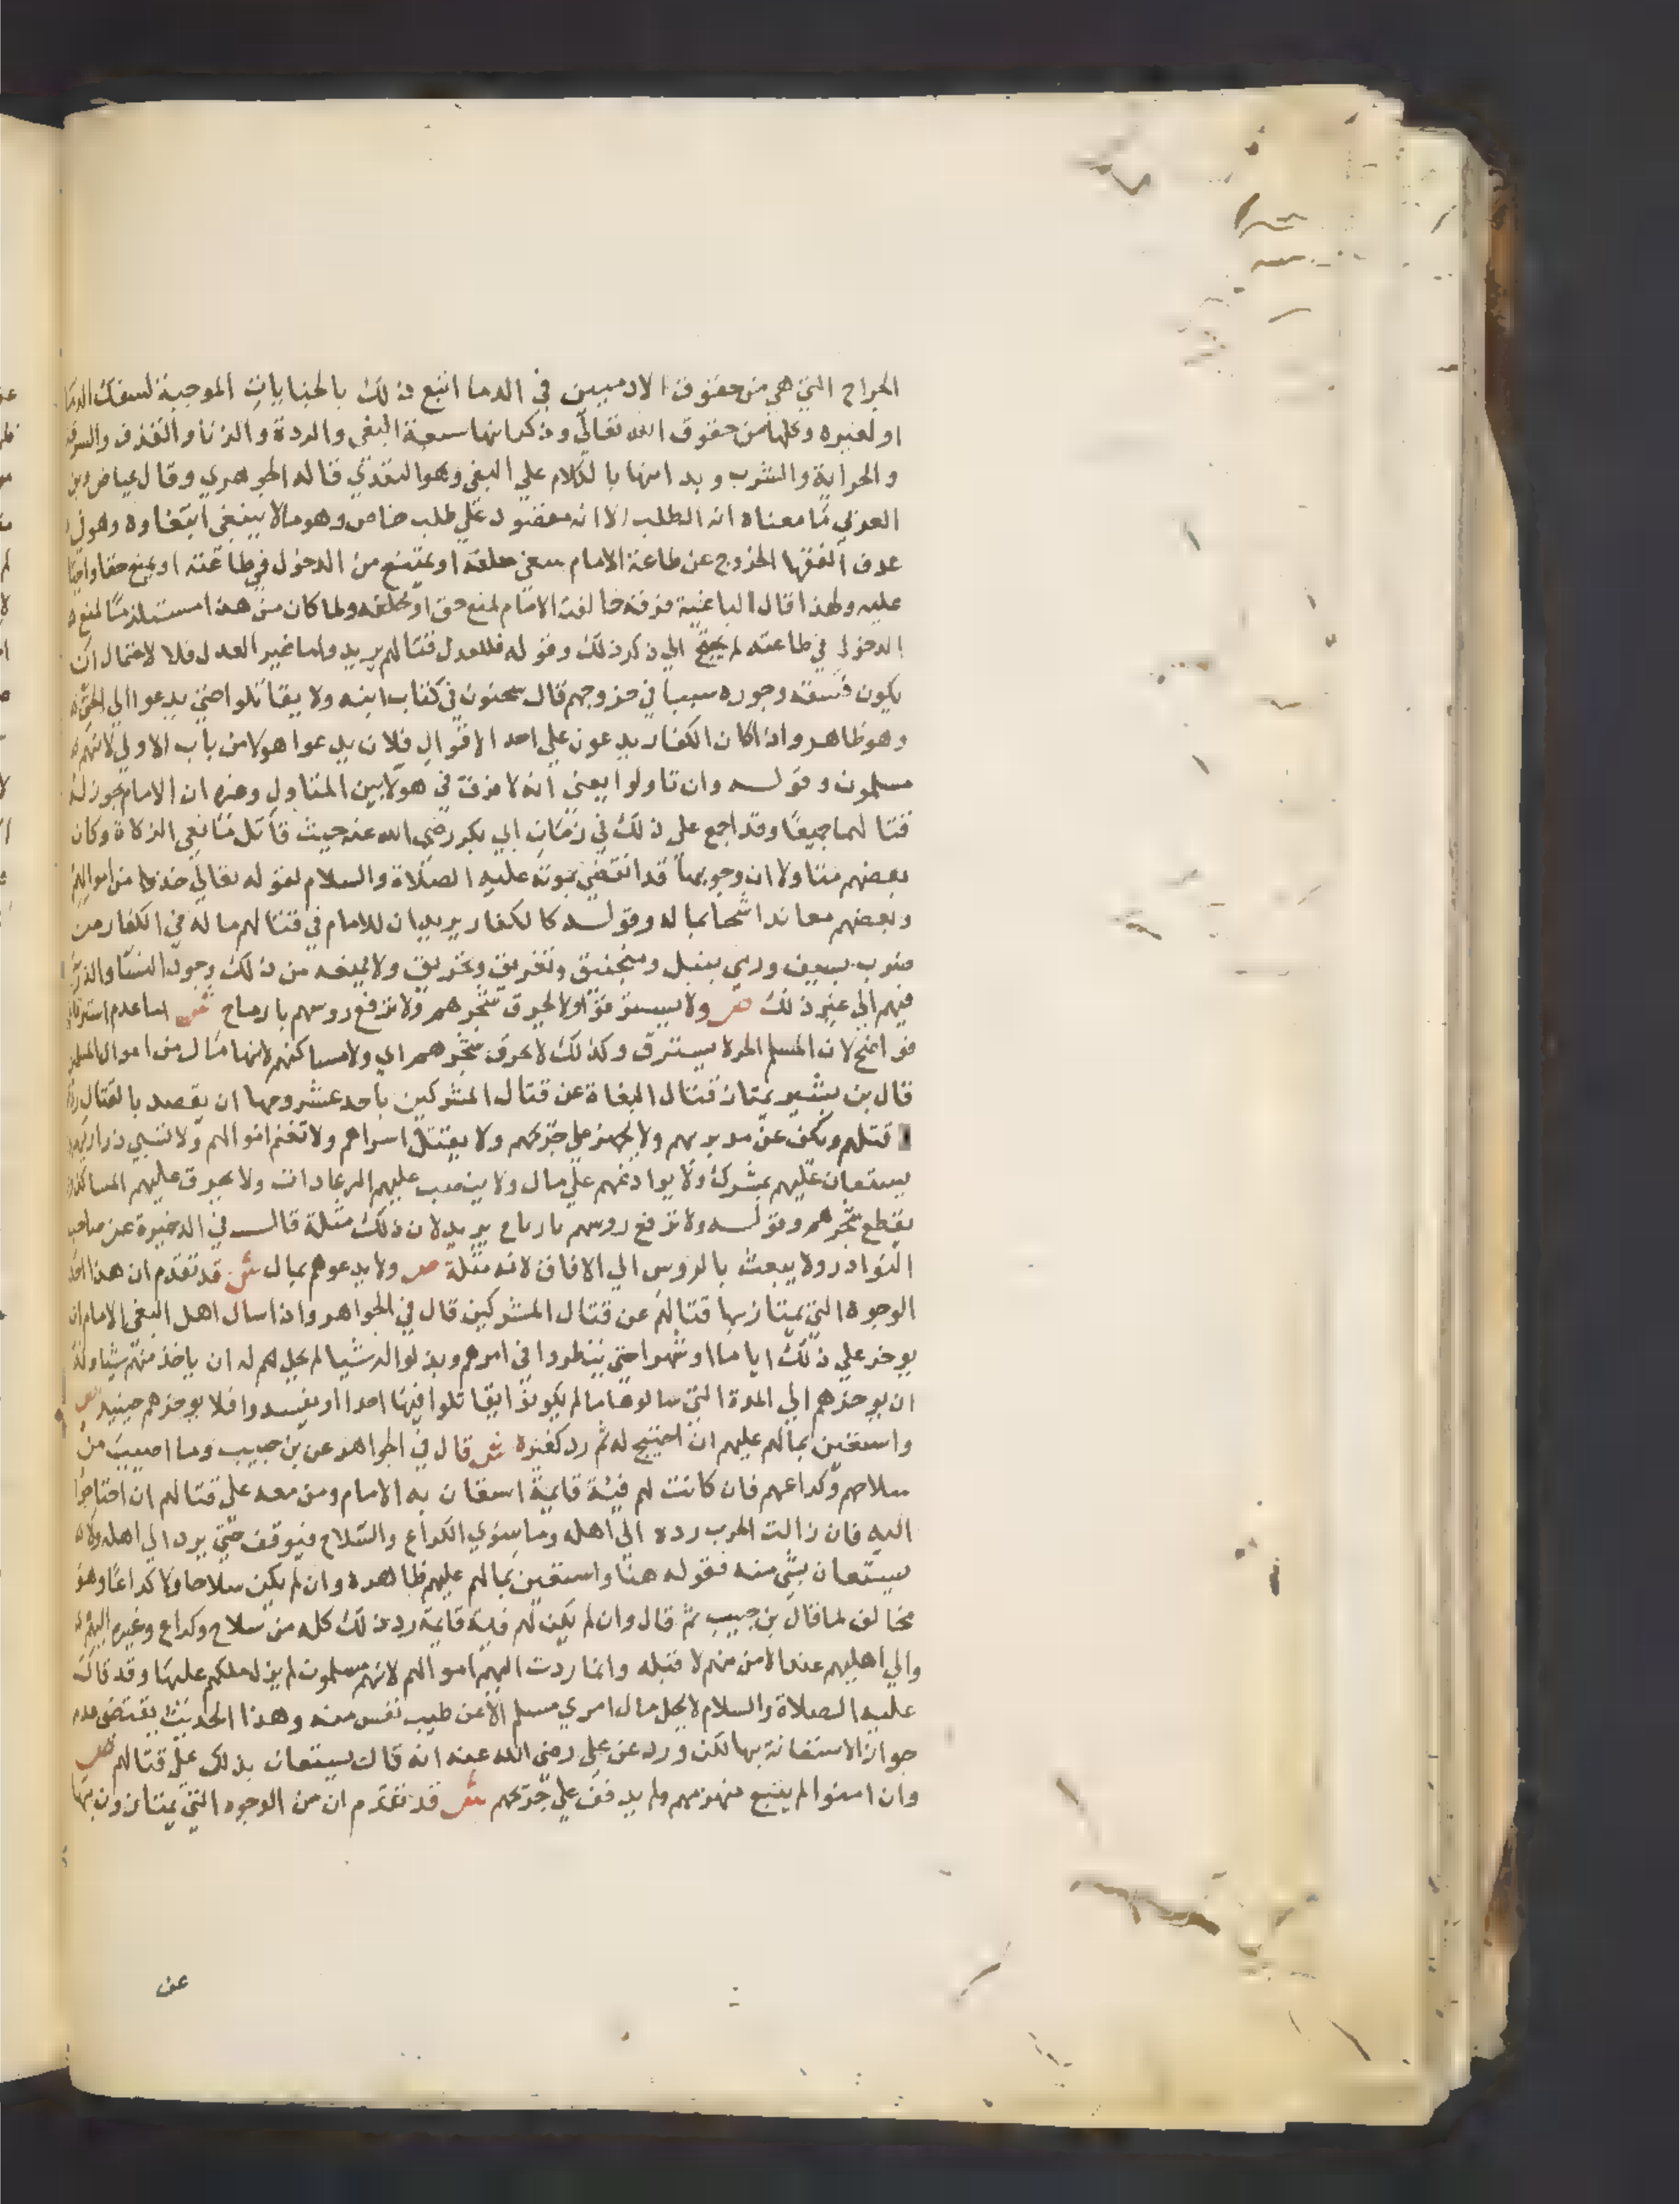 الجراح التي هي من حقوق الادميين في الدما اتبع ذلك بالجنايات الموجبة لسفك الدما
او لغيره وكلها من حقوق الله تعالي وذكر انها سبعة البغي والردة والزنا والقذف والسرقة
والحرابة والشرب وبدا منها بالكلام علي البغي وهو التعدي قاله الجوهري وقال عياض وبن
العربي ما معناه انه الطلب الا انه مقصور علي طلب خاص وهو ما لا ينبغي ابتغاوه وهو في
عرف الفقها الخروج عن طاعة الامام يبغي خلعه او يمتنع من الدخول في طاعته او يمنع حقا واجبا
عليه ولهذا قال الباغية فرقة خالفت الامام لمنع حق او لخلعه ولما كان منع هذا مستلزما لمنع
الدخول في طاعته لم يحتج الي ذكر ذلك وقوله فللعدل قتالهم يريد واما غير العدل فلا لاحتمال ان
يكون فسقه وجوره سببا في خروجهم قال سحنون في كتاب ابنه ولا يقاتلوا حتي يدعوا الي الحق
وهو ظاهر واذا كان الكفار يدعون علي احد الاقوال فلان يدعوا هولا من باب الاولي لانهم
مسلمون وقوله وان تاولوا يعني انه لا فرق في هولا بين المتاول وغيره ان الامام يجوز له
قتالهما جميعا وقد اجمع علي ذلك في زمان ابي بكر رضي الله عنه حيث قاتل مانعي الزكاة وكان
بعضهم متاولا ان وجوبها قد انقضي بموته عليه الصلاة والسلام لقوله تعالي خذ من اموالهم
وبعضهم معاندا شحا بماله وقوله كالكفار يريد ان للامام في قتالهم ما له في الكفار من
ضرب بسيف ورمي بنبل ومنجنيق وتغريق وتحريق ولا يمنعه من ذلك وجود النسا والذرية
فيهم الي غير ذلك ص ولا يسترقوا ولا يحرق شجرهم ولا ترفع روسهم بارماح ش اما عدم استرقاقهم
فواضح لان المسلم الحر لا يسترق وكذلك لا يحرق شجرهم اي ولا مساكنهم لانها مال من اموال المسلمين
قال بن بشير يمتاز قتال البغاة عن قتال المشركين باحد عشر وجها ان يقصد بالقتال ردعهم
قتلهم ويكف عن مدبرهم ولا يجهز علي جريحهم ولا يقتل اسراهم ولا تغنم اموالهم ولا تسبي ذراريهم
يستعان عليهم بمشرك ولا يوادعهم علي مال ولا ينصب عليهم الرعادات ولا يحرق عليهم المساكن ولا
يقطع شجرهم وقوله ولا ترفع روسهم بارماح يريد لان ذلك مثلة قال في الذخيرة عن صاحب
النوادر ولا يبعث بالروس الي الافاق لانه مثلة ص ولا يدعوهم بمال ش قد تقدم ان هذا احد
الوجوه التي يمتاز بها قتالهم عن قتال المشركين قال في الجواهر واذا سال اهل البغي الامام ان
يوخر علي ذلك اياما او شهرا حتي ينظروا في امرهم وبذلوا له شيا لم يحل له ان ياخذ منهم شيا وله
ان يوخرهم الي المدة التي سالوها ما لم يكونوا يقاتلوا فيها احدا او يفسدوا فلا يوخرهم حينيذ ص
واستعين بمالهم عليهم ان احتيج له ثم رد كغيره ش قال في الجواهر عن بن حبيب وما اصيب من
سلاحهم وكراعهم فان كانت لهم فيئة قايمة استعان به الامام ومن معه علي قتالهم ان احتاجوا
اليه فان زالت الحرب رده الي اهله وما سوي الكراع والسلاح فيوقف حتي يرد الي اهله ولا
يستعان بشي منه فقوله هنا واستعين بمالهم عليهم ظاهره وان لم يكن سلاحا ولا كراعا وهو
مخالف لما قال بن حبيب ثم قال وان لم يكن لهم فية قايمة رد ذلك كله من سلاح وكراع وغيره اليهم
والي اهليهم عند الامن منهم لا قبله وانما ردت اليهم اموالهم لانهم مسلمون لم يزل ملكهم عليها وقد قال
عليه الصلاة والسلام لا يحل مال امري مسلم الا عن طيب نفس منه وهذا الحديث يقتضي عدم
جواز الاستعانة بها لكن ورد عن علي رضي الله عنه انه قال يستعان بذلك علي قتالهم ص
وان امنوا لم يتبع منهزمهم ولم يدفف علي جريحهم ش قد تقدم ان من الوجوه التي يمتازون بها
عن